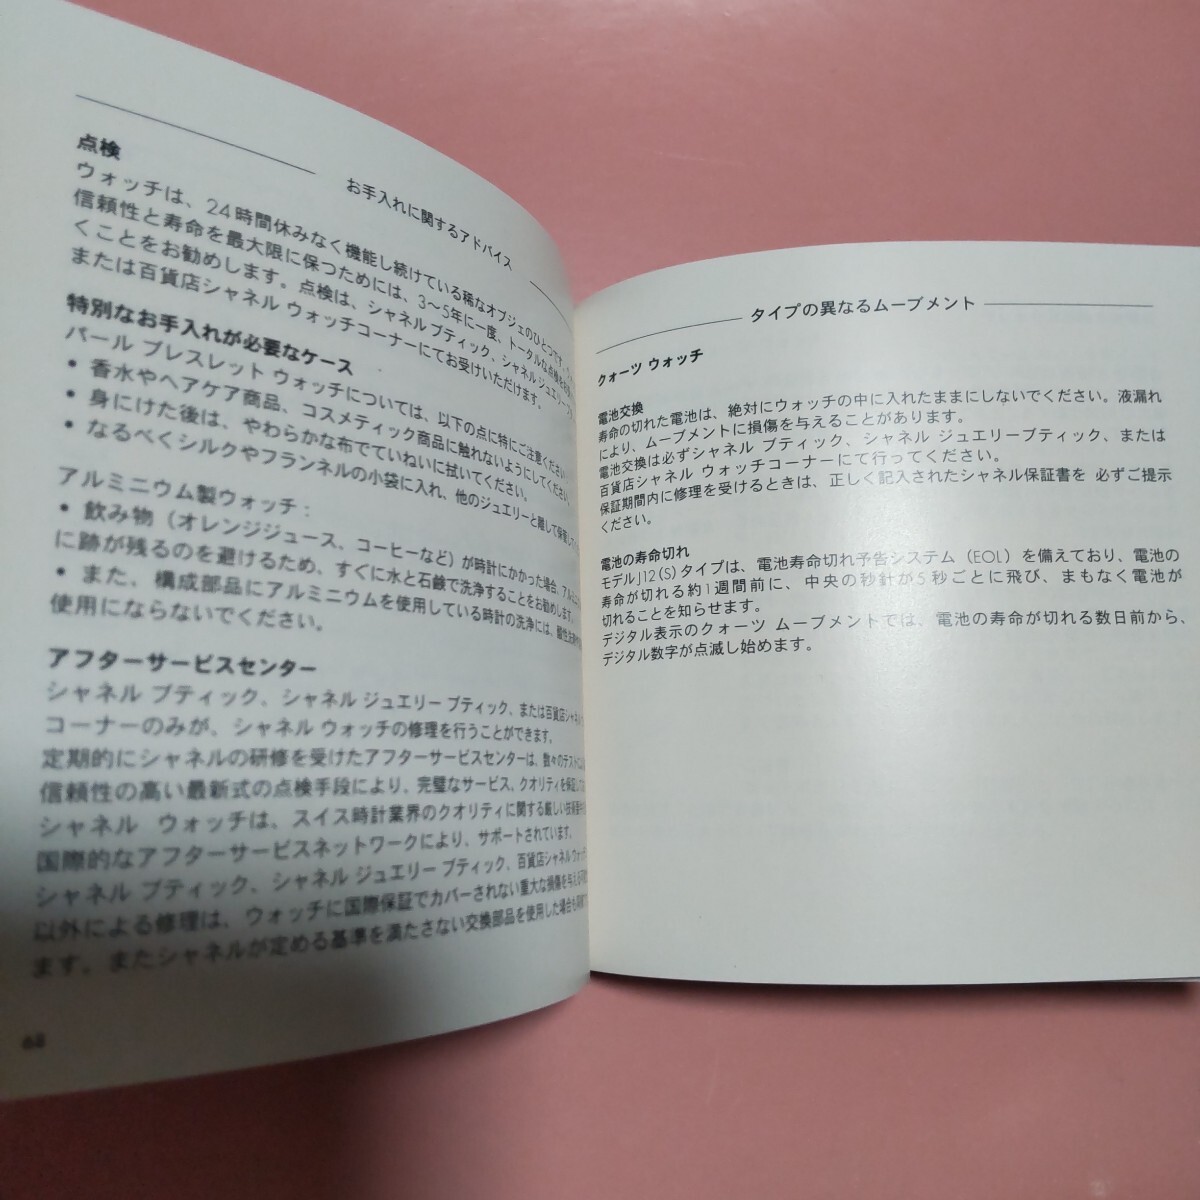 お手入れに関するアドバイス
点検
ウォッチは、24時間休みなく機能し続けている稀なオブジェのひとつです。
信頼性と寿命を最大限に保つためには、3〜5年に一度、トータルな点検を
くことをお勧めします。点検は、シャネル ブティック、シャネル ジュエリー
または百貨店シャネル ウォッチコーナーにてお受けいただけます。
特別なお手入れが必要なケース
パール ブレスレット ウォッチについては、以下の点に特にご注意ください
• 香水やヘアケア商品、コスメティック商品に触れないようにしてください。
• 身にけた後は、やわらかな布でていねいに拭いてください。
• なるべくシルクやフランネルの小袋に入れ、他のジュエリーと離して保管して
アルミニウム製ウォッチ：
• 飲み物（オレンジジュース、コーヒーなど）が時計にかかった場合、アルミニウム
に跡が残るのを避けるため、すぐに水と石鹸で洗浄することをお勧めします。
• また、構成部品にアルミニウムを使用している時計の洗浄には、
使用にならないでください。
アフターサービスセンター
シャネル ブティック、シャネル ジュエリー ブティック、または百貨店シャネル
コーナーのみが、シャネル ウォッチの修理を行うことができます。
定期的にシャネルの研修を受けたアフターサービスセンターは、数々のテスト
信頼性の高い最新式の点検手段により、完璧なサービス、クオリティを保証して
シャネル ウォッチは、スイス時計業界のクオリティに関する厳しい技術
国際的なアフターサービスネットワークにより、サポートされています。
シャネル ブティック、シャネル ジュエリー ブティック、百貨店シャネル ウォッチ
以外による修理は、ウォッチに国際保証でカバーされない重大な損傷を与える
ます。またシャネルが定める基準を満たさない交換部品を使用した場合も
68
タイプの異なるムーブメント
クォーツ ウォッチ
電池交換
寿命の切れた電池は、絶対にウォッチの中に入れたままにしないでください。液漏れ
により、ムーブメントに損傷を与えることがあります。
電池交換は必ずシャネル ブティック、シャネル ジュエリーブティック、または
百貨店シャネル ウォッチコーナーにて行ってください。
保証期間内に修理を受けるときは、正しく記入されたシャネル保証書を 必ずご提示
ください。
電池の寿命切れ
モデルJ12(S)タイプは、電池寿命切れ予告システム（EOL）を備えており、電池の
寿命が切れる約1週間前に、中央の秒針が5秒ごとに飛び、まもなく電池が
切れることを知らせます。
デジタル表示のクォーツ ムーブメントでは、電池の寿命が切れる数日前から、
デジタル数字が点滅し始めます。